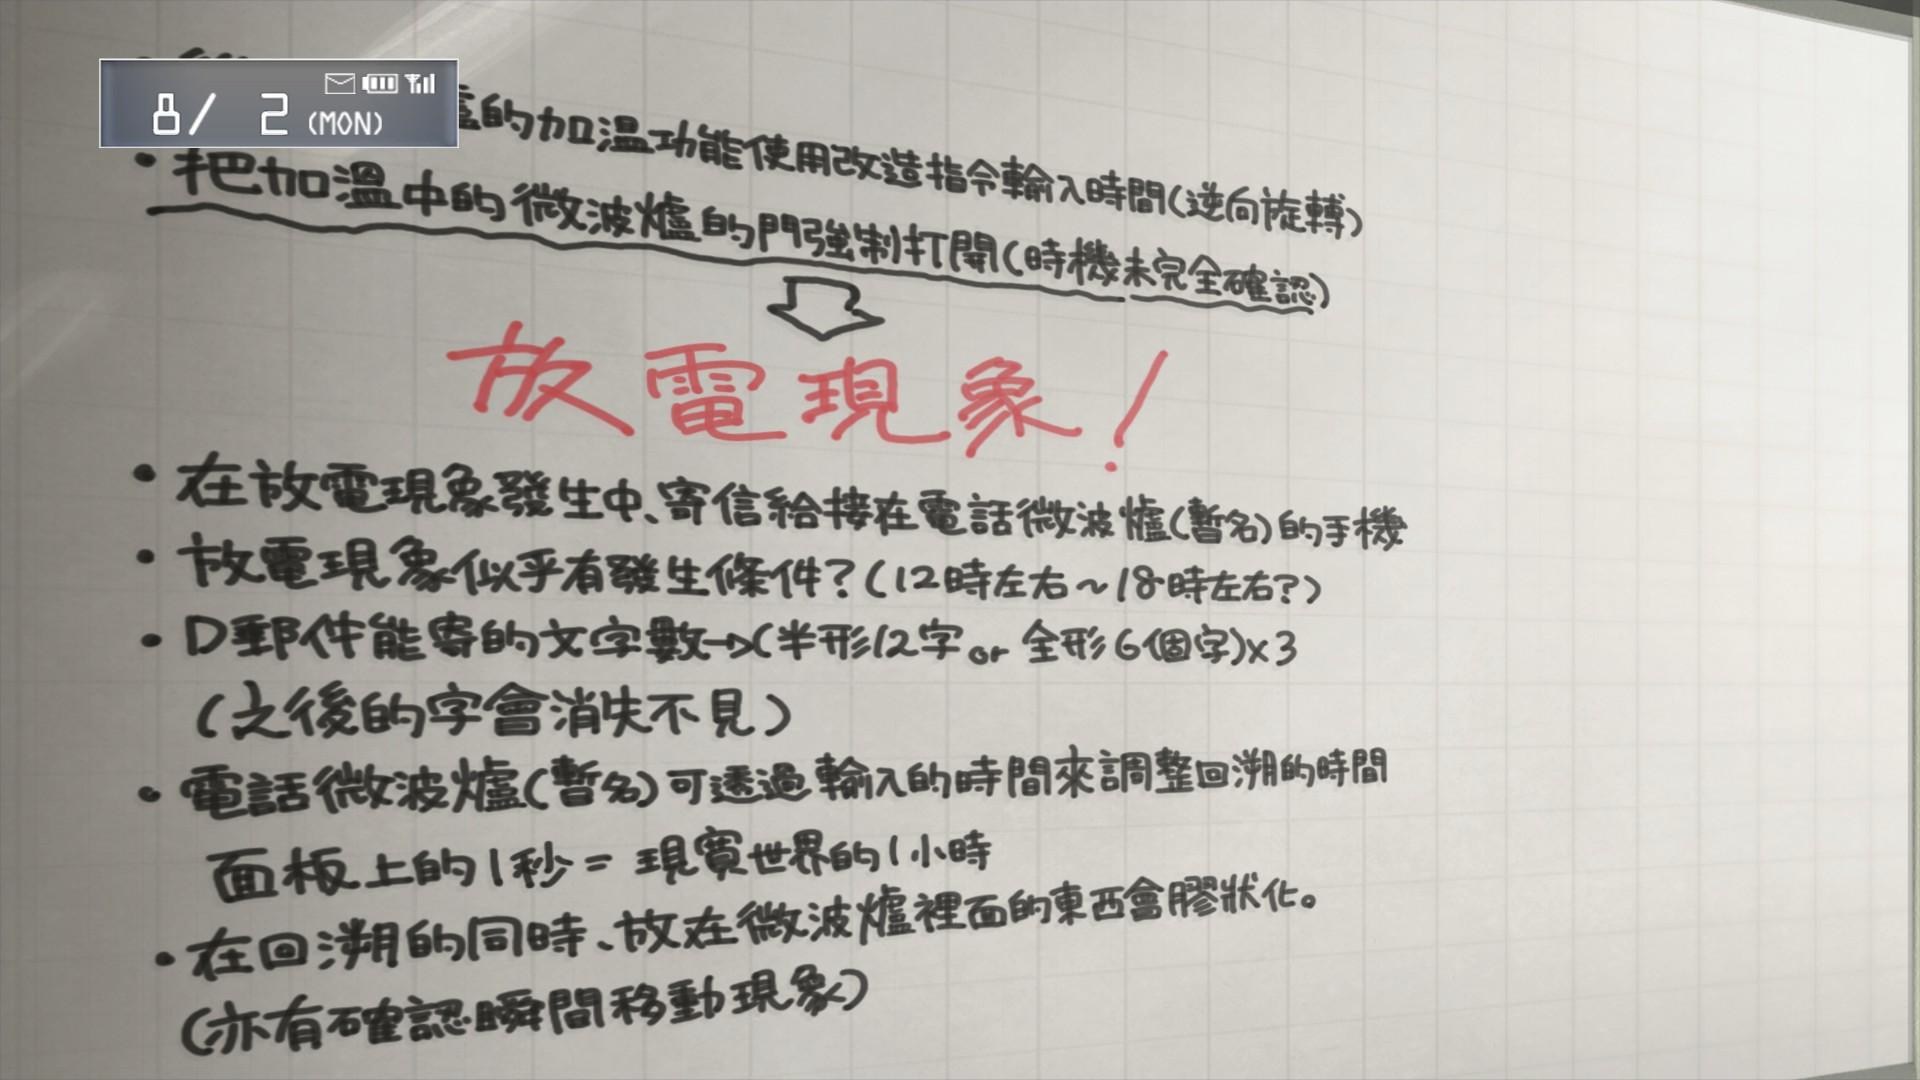 8/ 2 (MON)
的加温功能使用改造指令輸入時間(逆向旋轉)
・把加溫中的微波爐的門強制打開(時機未完全確認)
放電現象!
・在放電現象發生中、寄信給接在電話微波爐(暫名)的手機
・放電現象似乎有發生條件?(12時左右~18時左右?)
・D郵件能寄的文字數→(半形12字or 全形6個字)x3
(之後的字會消失不見)
・電話微波爐(暫名)可透過輸入的時間來調整回溯的時間
面板上的1秒=現實世界的1小時
・在回溯的同時、放在微波爐裡面的東西會膠狀化。
(亦有確認瞬間移動現象)